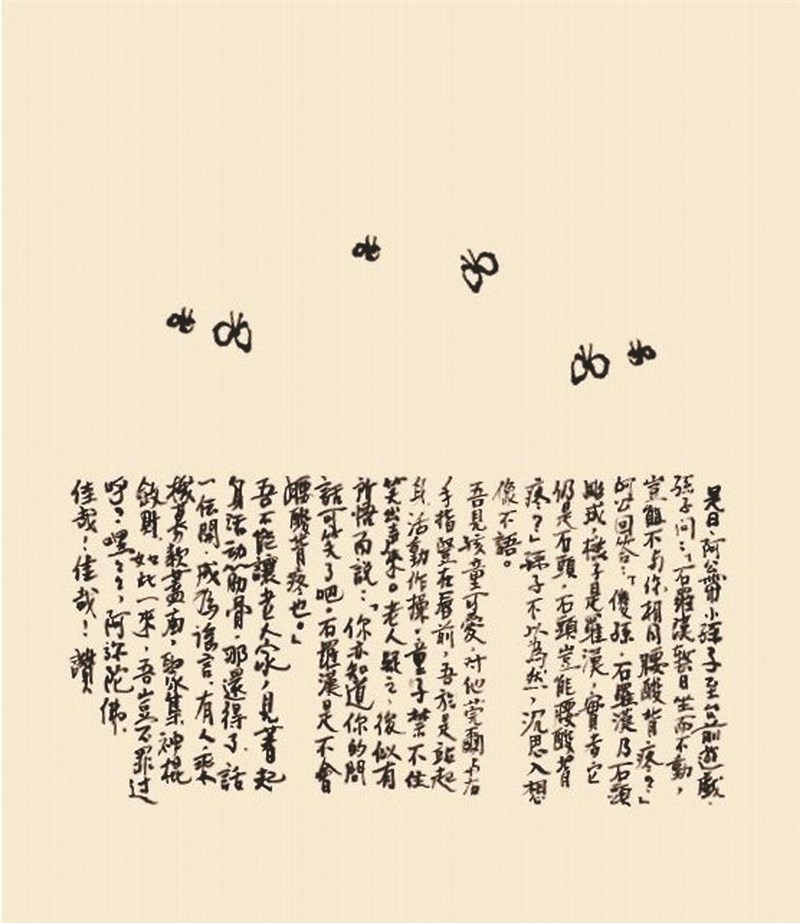 是日，阿公帶小孫子至吾前遊戲，
孫子問：「石羅漢整日坐而不動，
豈能不与你相同腰酸背疼？」
阿公回答：「傻孫，石羅漢乃石頭
雕或，樣子是羅漢，實者它
仍是石頭，石頭豈能腰酸背
疼？」孫子不以為然，沉思入想
像不語。
吾見孩童可愛，对他莞爾与右
手指豎在唇前，吾於是站起
身活動作操，童子禁不住
笑出声來。老人疑之，後似有
所悟而說：「你亦知道你的問
話可笑了吧，石羅漢是不會
腰酸背疼也。」
吾不能讓老人家，見著起
身活动筋骨，那還得了，話
一伝開，成為謠言，有人乘
機募款蓋廟，聚眾集神棍
斂財，如此一來，吾豈不罪过
呼？嘿嘿，阿弥陀佛，
佳哉！佳哉！讚